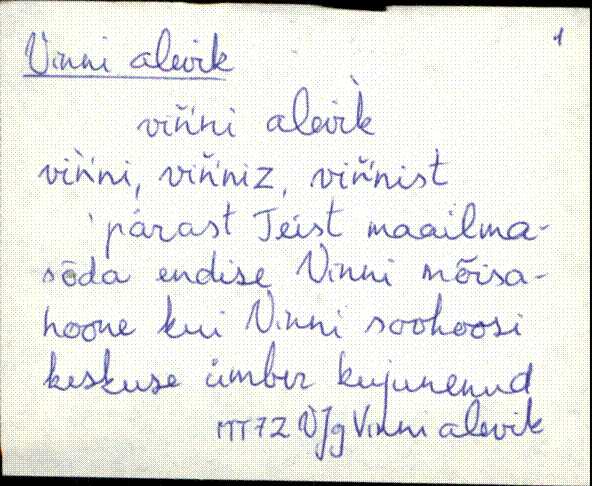 Vinni alevik 1
viǹ'ni aleviK̀
viǹ'ni, viǹ'niz, viǹ'nist
pärast Teist maailma-
sõda endise Vinni mõisa-
hoone kui Vinni soohoosi
keskuse ümber kujunenud
MT 72 VJg Vinni alevik